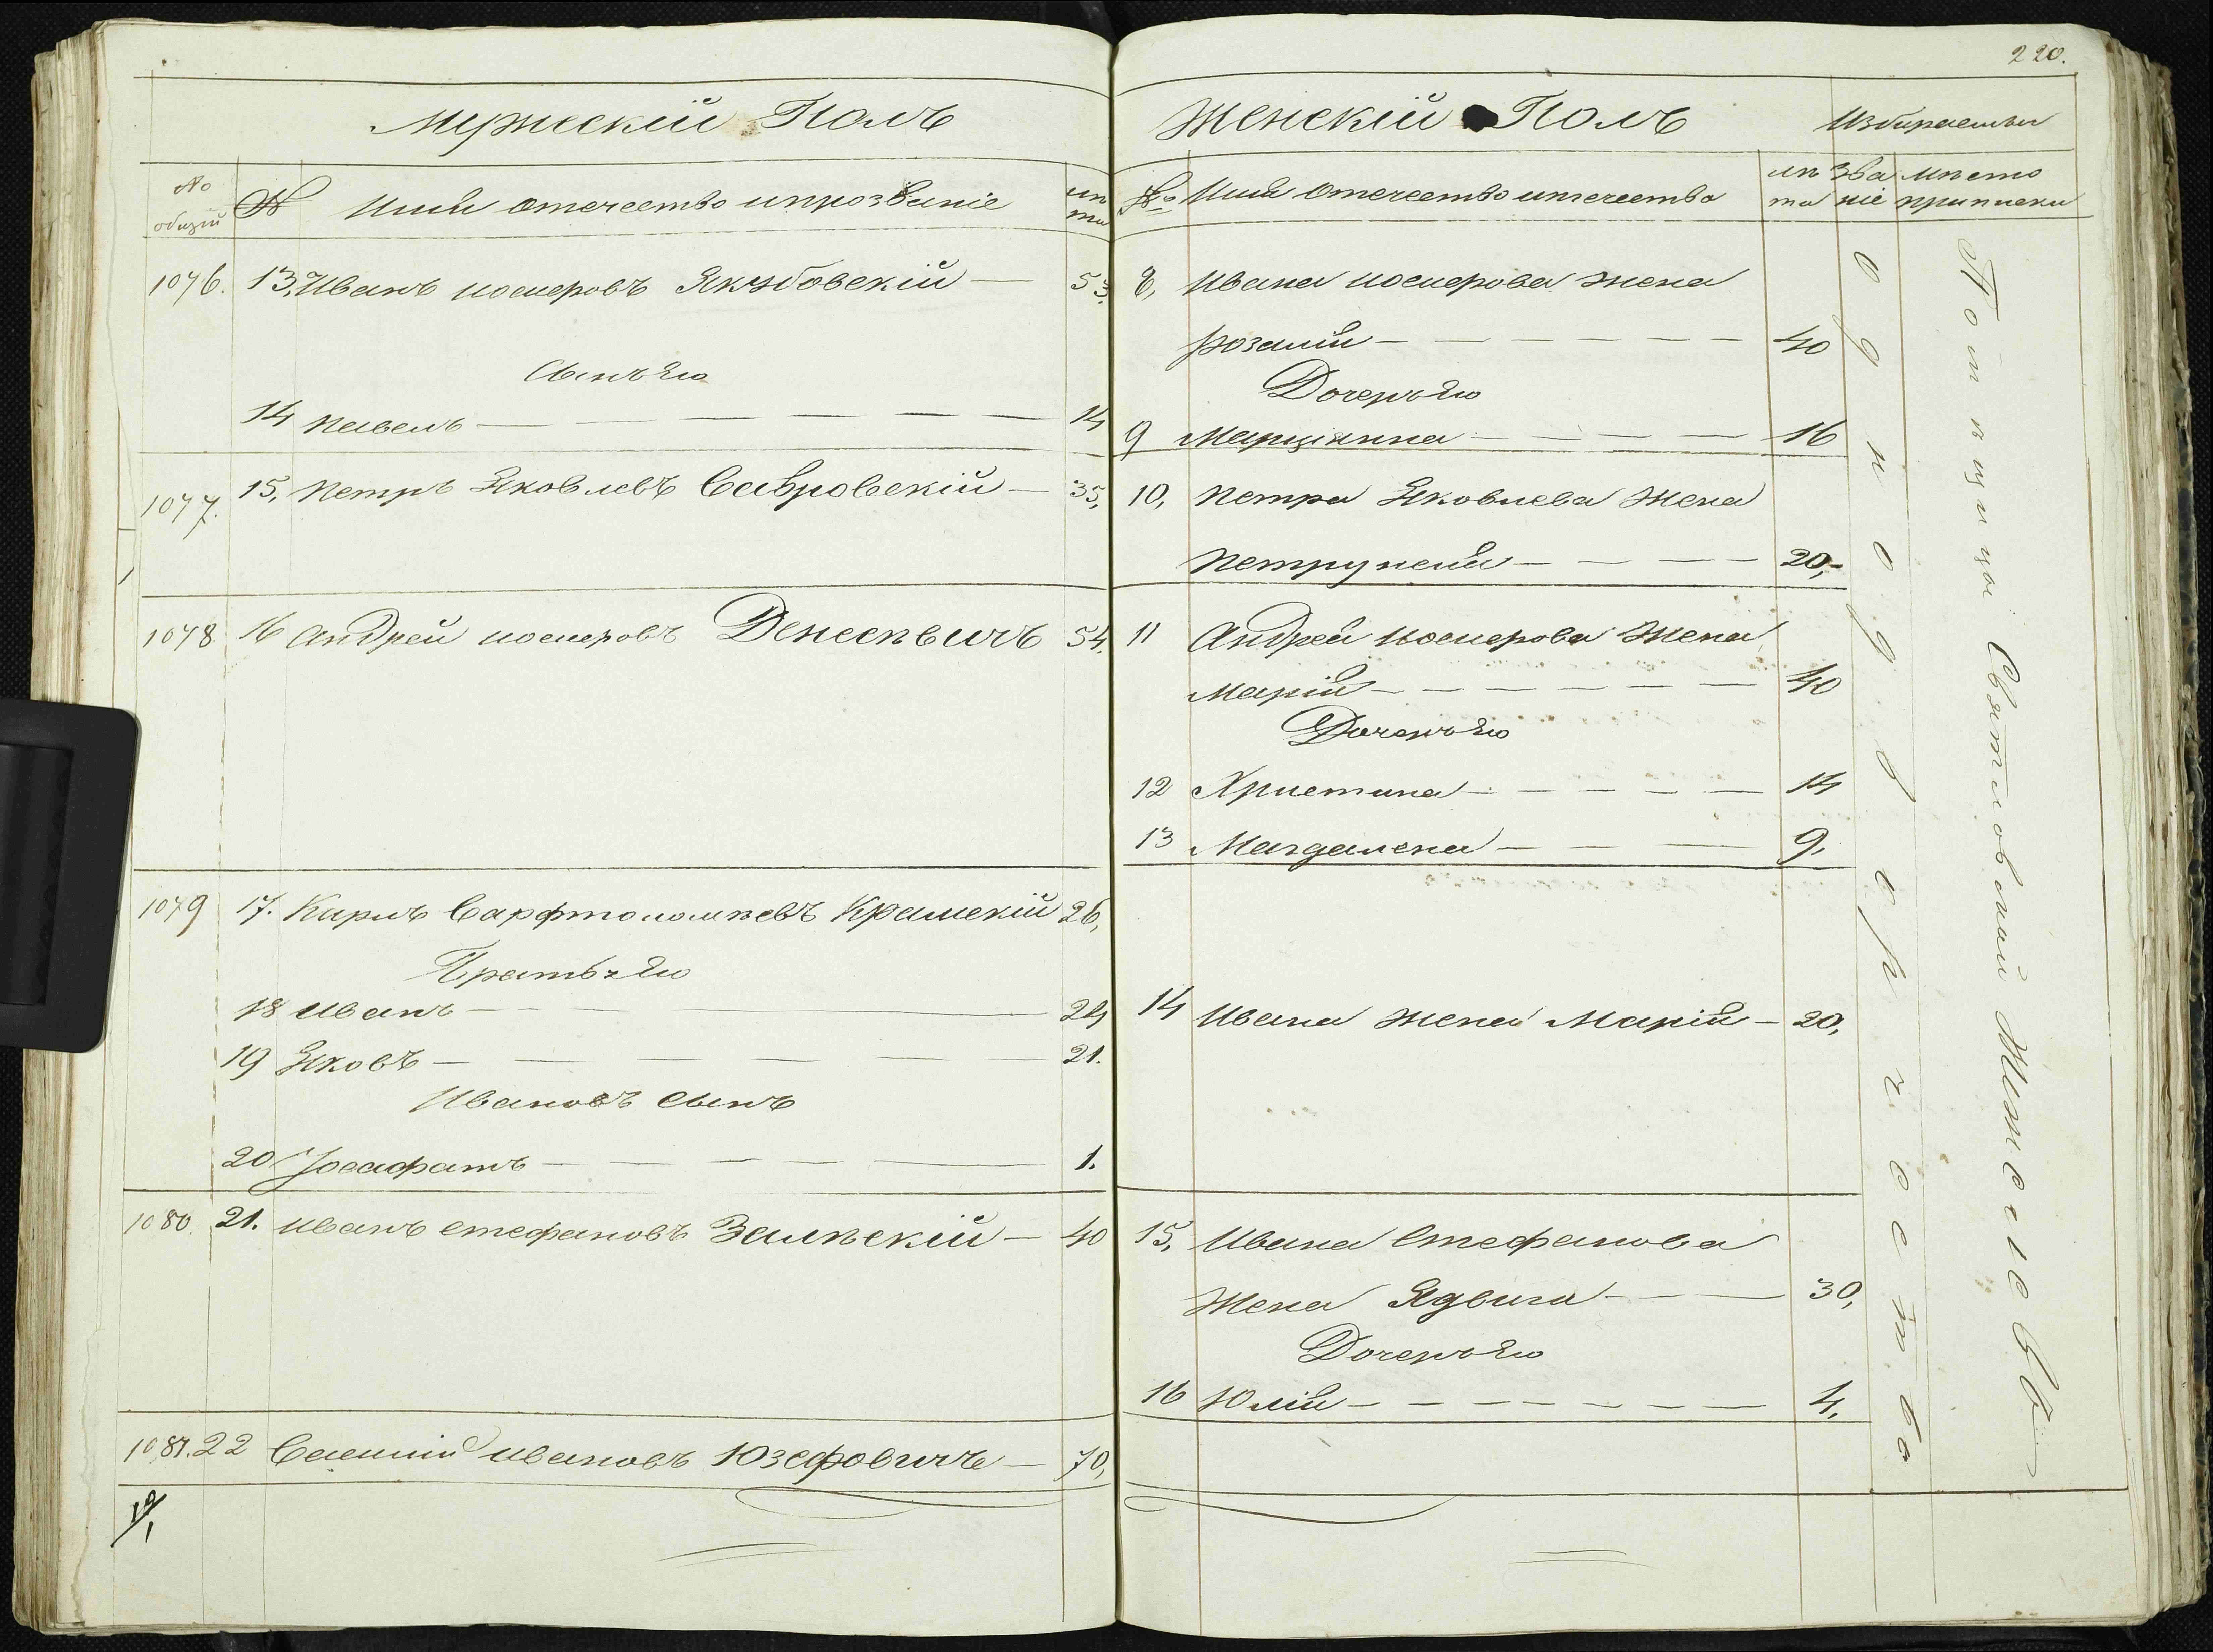 220.
Мужескій Полъ
№ общій
№
Имя отечество и прозваніе
лѣта
1076. 13. Иванъ иосифовъ Якубовскій — 53.
Сынъ его
14 Павелъ — 14
1077. 15. Петръ Яковлевъ Савровскій — 35,
1078 16 Андрей иосифовъ Денсевичъ 54.
1079 17. Карлъ Варфтоломѣевъ Крамскій 26,
Братья его
18 Иванъ — 24
19 Яковъ — 21.
Ивановъ сынъ
20 Іосафатъ — 1.
1080. 21. Иванъ стефановъ Залѣскій — 40
1081. 22 ивановъ Юзефовичъ — 70,
10/1
Женскій Полъ
Избираемый
№ Имя отечество и отечество
лѣта
званіе
мѣсто приписки
8, Ивана иосифова жена
Розалія — 40
Дочерь его
9 Марціянна — 16
10, Петра Яковлева жена
Петрунеля — 20,
11 Андрея иосифова жена
Марія — 40
Дочерь его
12 Христина — 14
13 Магдалена — 9,
14 Ивана жена Марія — 20,
15, Ивана Стефанова
жена Ядвига — 30,
Дочерь его
16 Юлія — 4,
однодворчество